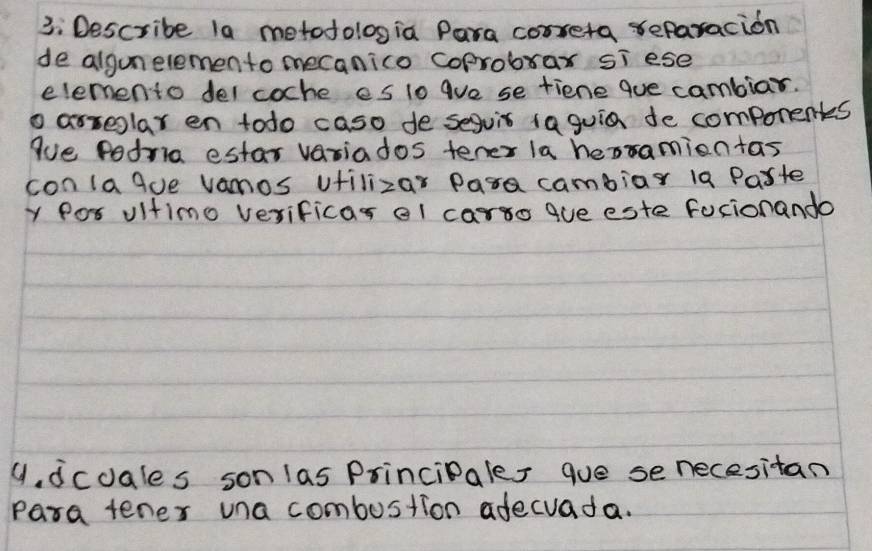 3: Describe la metodologia Para correta reparación
de algun elemento mecanico coprobrar si ese
elemento del coche es lo que se tiene que cambiar.
o arreglar en todo caso de seguir la guia de componentes
que Podria estar variados tener la herramientas
con la que vamos utilizar Para cambiar la Parte
y Por ultimo verificar el carro que este fucionando
4. ¿cuales son las Principales que se necesitan
Para tener una combustion adecuada.